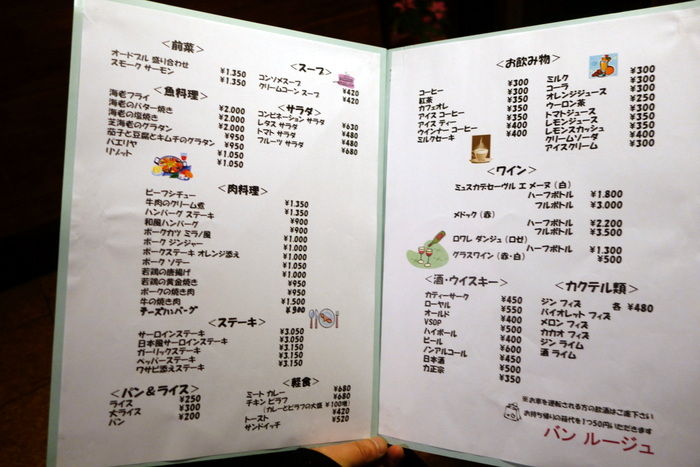 <前菜>
オードブル 盛り合わせ ¥1.350
スモーク サーモン ¥1.350
<魚料理>
海老フライ ¥2.000
海老のバター焼き ¥2.000
海老の塩焼き ¥2.000
芝海老のグラタン ¥950
茄子と豆腐とキムチのグラタン ¥950
パエリヤ ¥1.050
リゾット ¥1.050
<スープ>
コンソメスープ ¥420
クリームコーン スープ ¥420
<サラダ>
コンビネーション サラダ ¥630
レタス サラダ ¥480
トマト サラダ ¥480
フルーツ サラダ ¥680
<肉料理>
ビーフシチュー ¥1.350
牛肉のクリーム煮 ¥1.350
ハンバーグ ステーキ ¥900
和風ハンバーグ ¥900
ポークカツ ミラノ風 ¥1.000
ポーク ジンジャー ¥1.000
ポークステーキ オレンジ添え ¥1.000
ポーク ソテー ¥1.050
若鶏の唐揚げ ¥1.000
若鶏の黄金焼き ¥950
ポークの焼き肉 ¥950
牛の焼き肉 ¥1.500
チーズハンバーグ ¥900
<ステーキ>
サーロインステーキ ¥3.050
日本風サーロインステーキ ¥3.050
ガーリックステーキ ¥3.150
ペッパーステーキ ¥3.150
ワサビ添えステーキ ¥3.150
<パン&ライス>
ライス ¥250
大ライス ¥300
パン ¥200
<軽食>
ミート カレー ¥680
チキン ピラフ ¥680
(カレーとピラフの大盛 ¥100増)
トースト ¥420
サンドイッチ ¥520
<お飲み物>
コーヒー ¥300
紅茶 ¥300
カフェオレ ¥350
アイス コーヒー ¥350
アイス ティー ¥350
ウインナー コーヒー ¥400
ミルクセーキ ¥400
ミルク ¥300
コーラ ¥300
オレンジジュース ¥300
ウーロン茶 ¥250
トマトジュース ¥300
レモンジュース ¥350
レモンスカッシュ ¥350
クリームソーダ ¥400
アイスクリーム ¥300
<ワイン>
ミュスカデセーヴル エ メーヌ (白)
ハーフボトル ¥1.800
フルボトル ¥3.000
メドック (赤)
ハーフボトル ¥2.200
フルボトル ¥3.500
ロワレ ダンジュ (ロゼ)
ハーフボトル ¥1.300
グラスワイン (赤・白) ¥500
<酒・ウイスキー>
カティーサーク ¥450
ローヤル ¥550
オールド ¥400
VSOP ¥500
ハイボール ¥400
ビール ¥600
ノンアルコール ¥450
日本酒 ¥500
力正宗 ¥350
<カクテル類>
ジン フィズ 各 ¥480
バイオレット フィズ
メロン フィズ
カカオ フィズ
ジン ライム
酒 ライム
※お車を運転される方の飲酒はご遠慮下さい
お持ち帰りの箱代を1つ50円いただきます
バン ルージュ